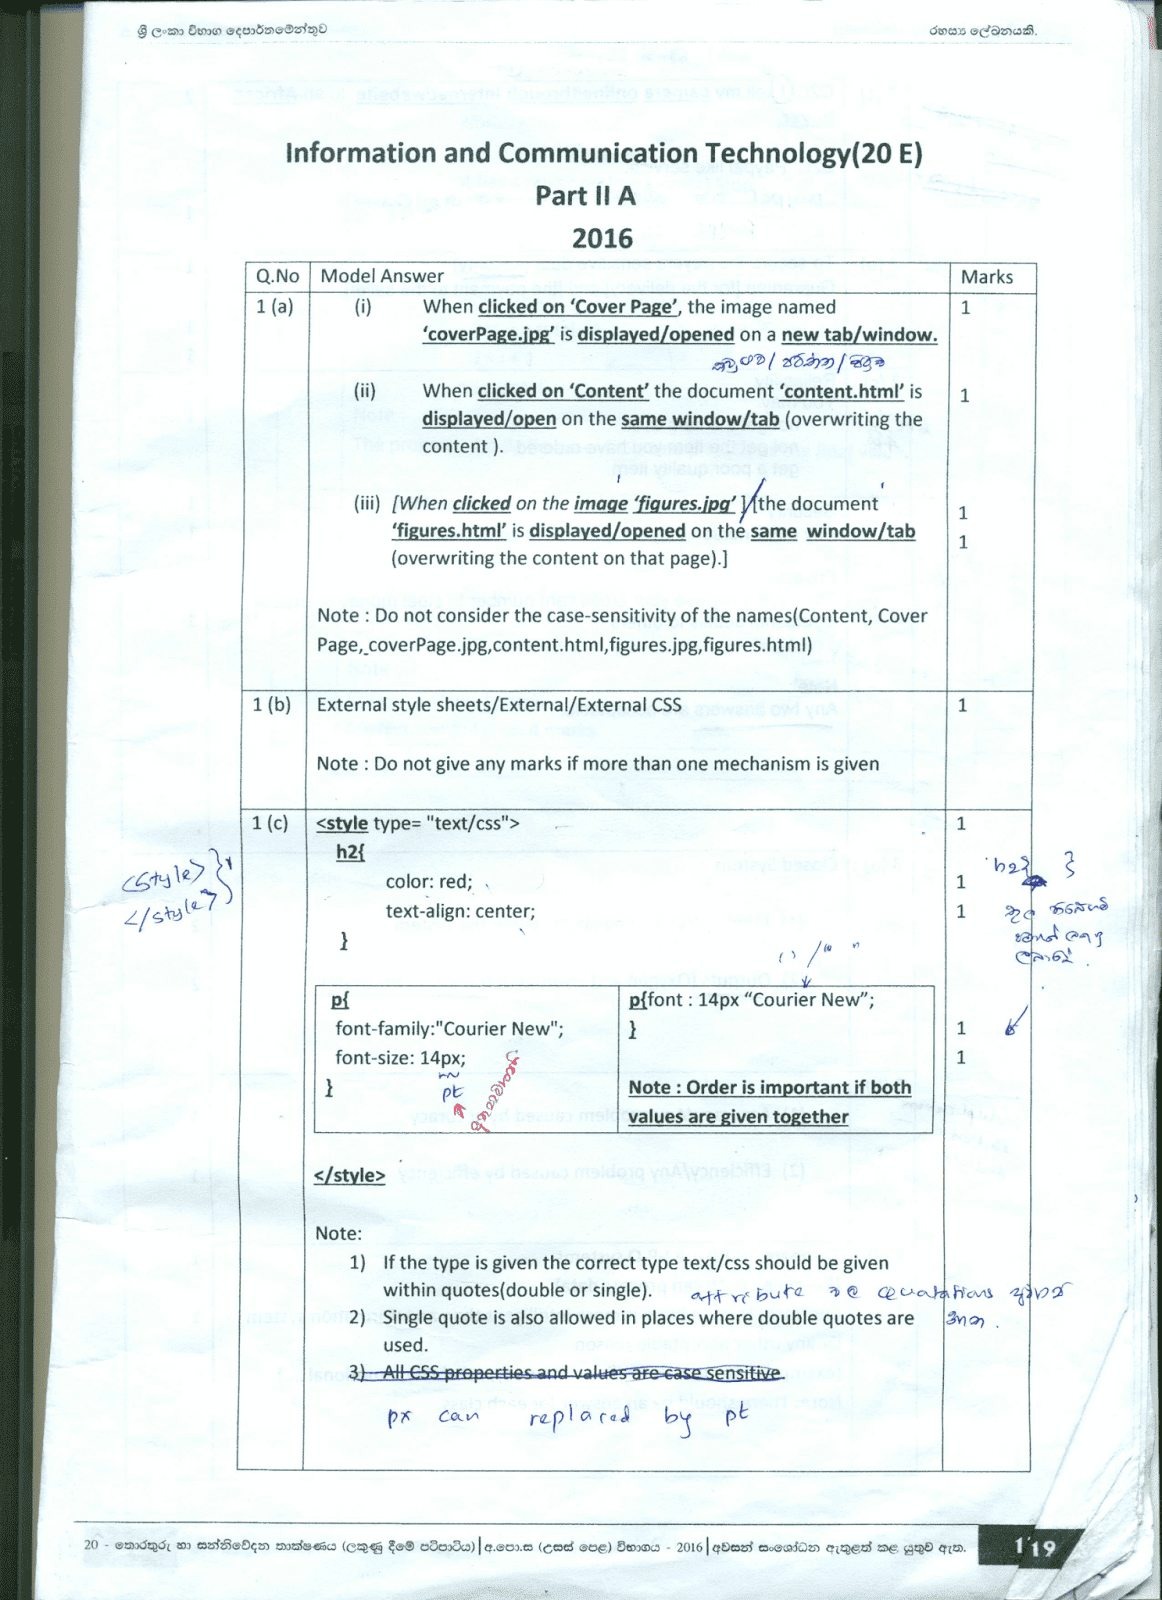 ශ්‍රී ලංකා විභාග දෙපාර්තමේන්තුව
රහස්‍ය ලේඛනයකි.
Information and Communication Technology(20 E)
Part II A
2016
Q.No Model Answer Marks
1 (a) (i) When clicked on ‘Cover Page’, the image named 1
‘coverPage.jpg’ is displayed/opened on a new tab/window.
(ii) When clicked on ‘Content’ the document ‘content.html’ is 1
displayed/open on the same window/tab (overwriting the
content ).
(iii) [When clicked on the image ‘figures.jpg’ ] [the document 1
‘figures.html’ is displayed/opened on the same window/tab 1
(overwriting the content on that page).]
Note : Do not consider the case-sensitivity of the names(Content, Cover
Page,_coverPage.jpg,content.html,figures.jpg,figures.html)
1 (b) External style sheets/External/External CSS 1
Note : Do not give any marks if more than one mechanism is given
1 (c) <style type= "text/css"> 1
h2{
<style>
</style>
color: red; 1
h2{ }
text-align: center; 1
}
p{
font-family:"Courier New";
font-size: 14px;
}
pt
p{font : 14px “Courier New”; 
}
1
1
Note : Order is important if both
values are given together
</style>
Note:
1) If the type is given the correct type text/css should be given
within quotes(double or single).
attribute
2) Single quote is also allowed in places where double quotes are
used.
3) All CSS properties and values are case sensitive.
px can replaced by pt
20 - තොරතුරු හා සන්නිවේදන තාක්ෂණය (ලකුණු දීමේ පටිපාටිය) | අ.පො.ස (උසස් පෙළ) විභාගය - 2016 | අවසන් සංශෝධන ඇතුළත් කළ යුතුව ඇත.
119